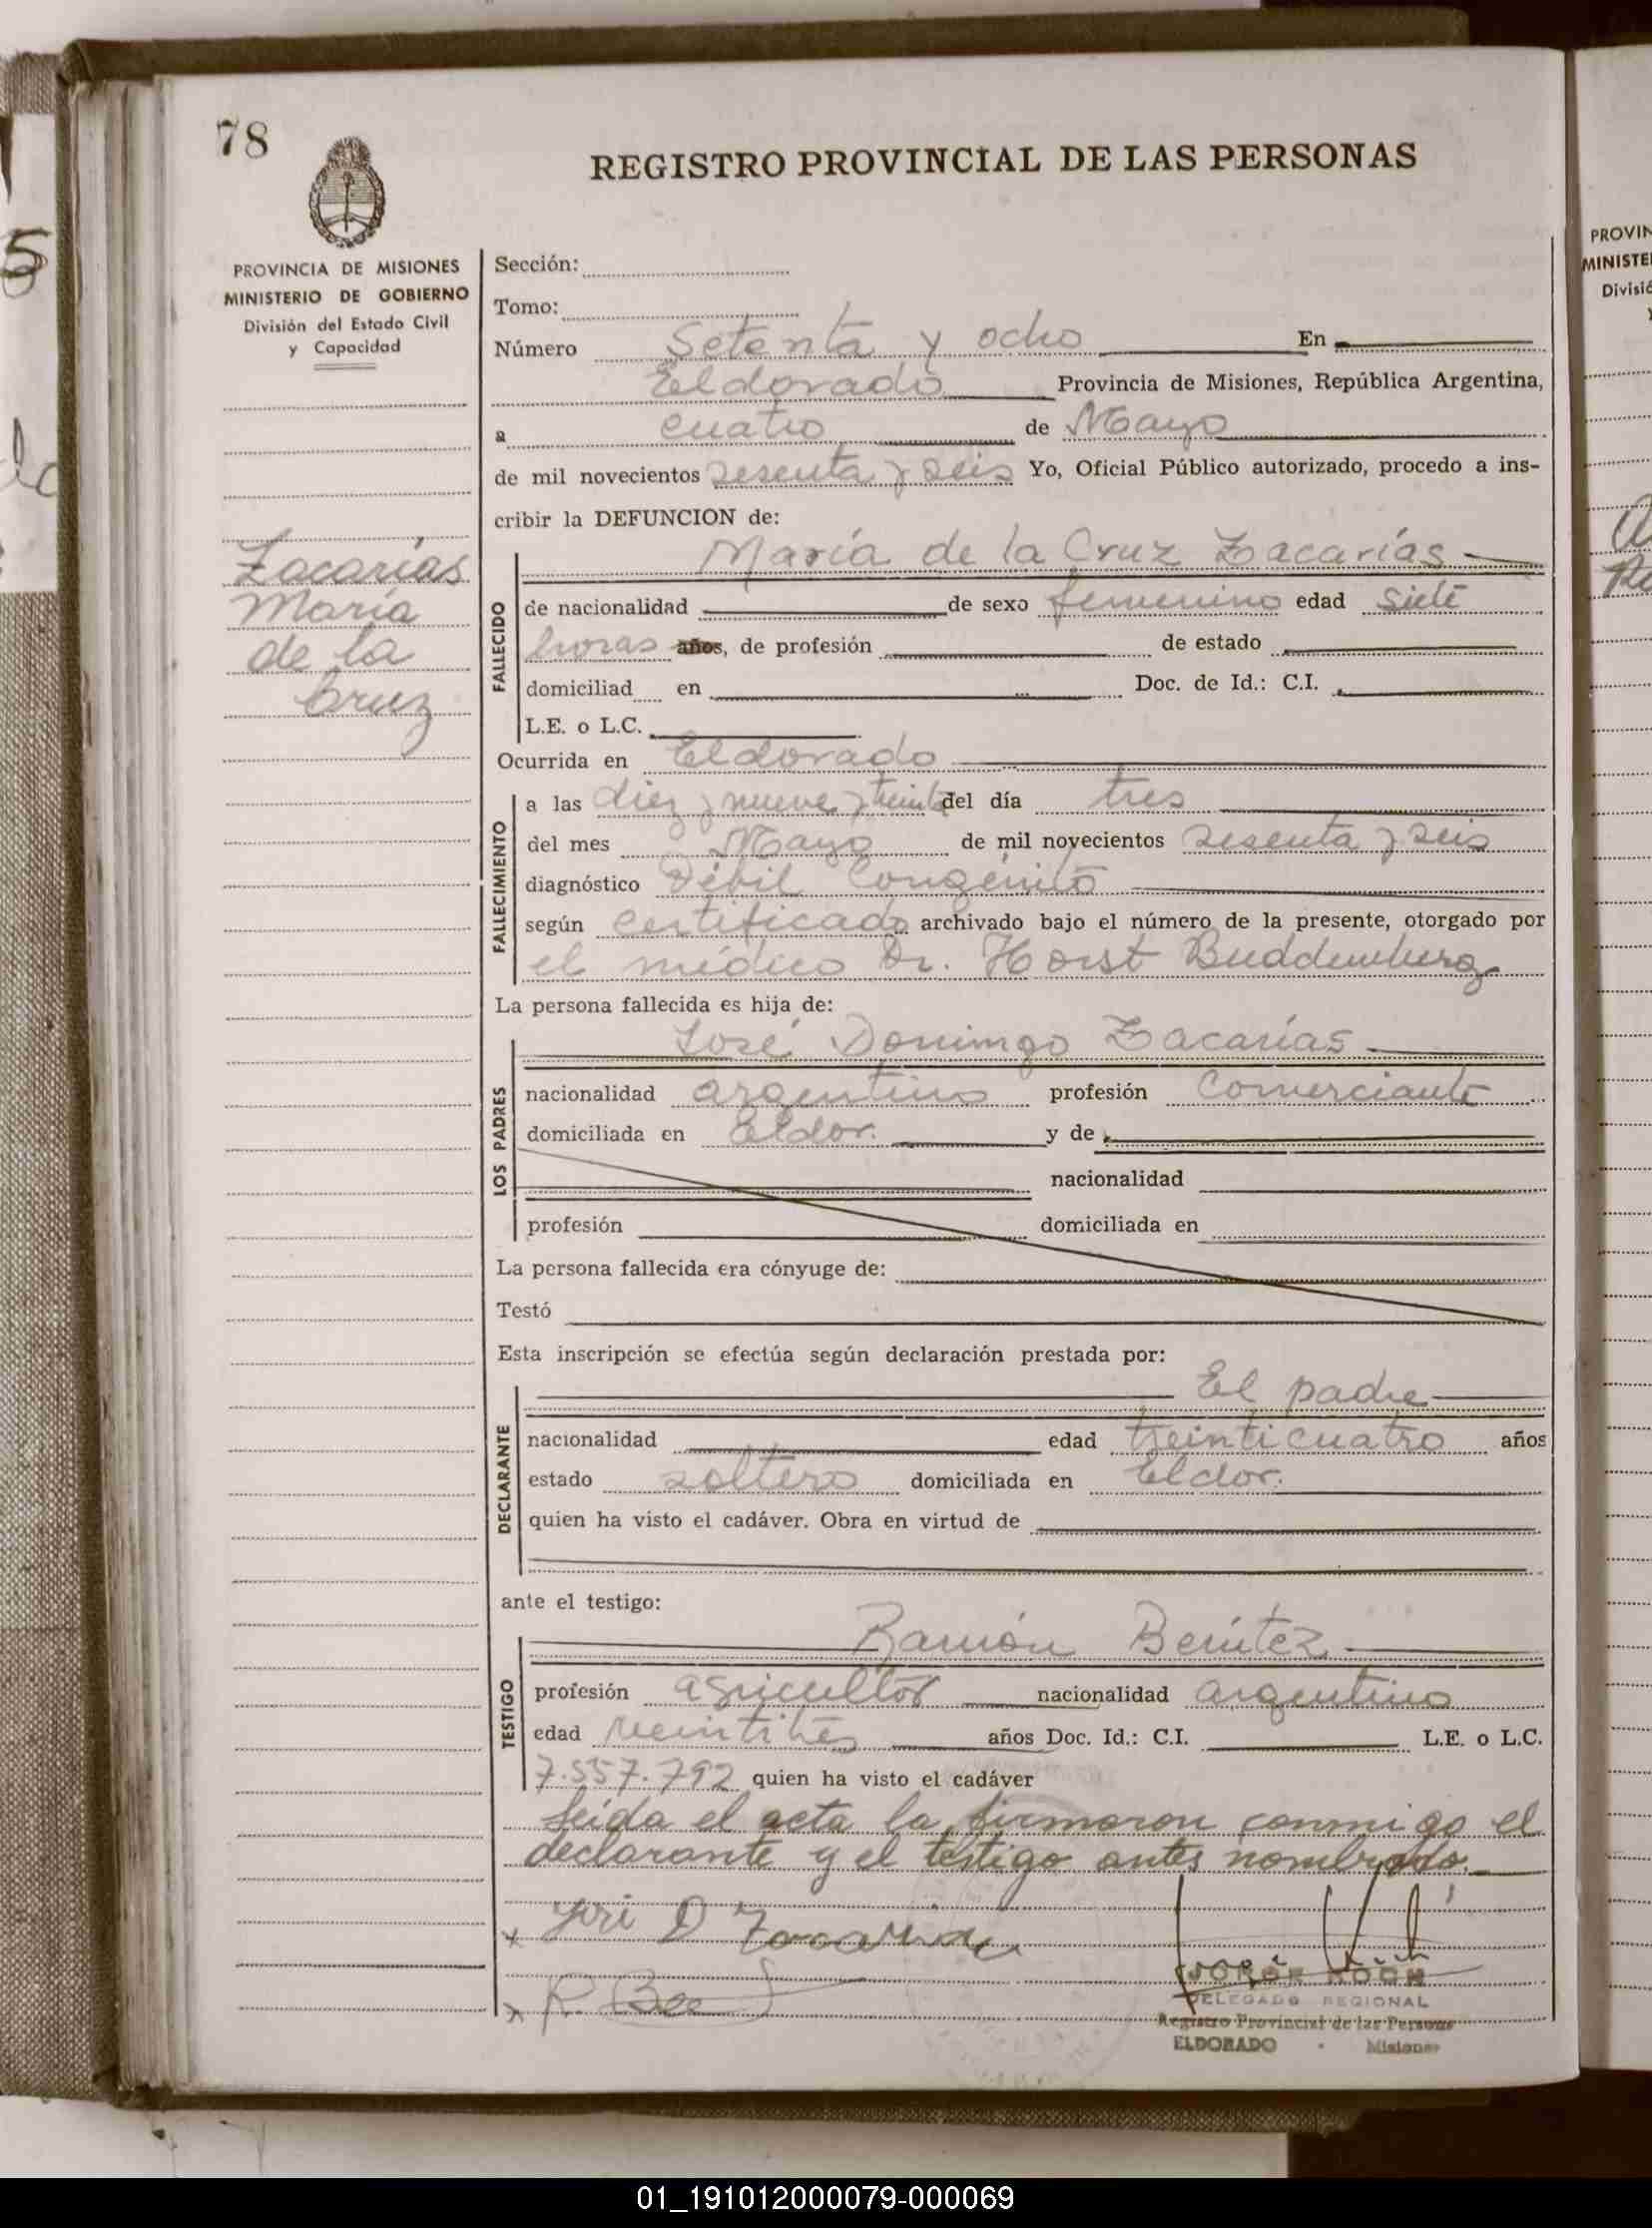 78
REGISTRO PROVINCIAL DE LAS PERSONAS
PROVINCIA DE MISIONES
MINISTERIO DE GOBIERNO
División del Estado Civil
y Capacidad
Zacarías
María
de la
Cruz
Sección:
Tomo:
Número Setenta y ocho En
Eldorado Provincia de Misiones, República Argentina,
a cuatro de Mayo
de mil novecientos sesenta y seis Yo, Oficial Público autorizado, procedo a ins-
cribir la DEFUNCION de:
FALLECIDO
María de la Cruz Zacarías
de nacionalidad de sexo femenino edad siete
horas años, de profesión de estado
domiciliad en Doc. de Id.: C.I.
L.E. o L.C.
Ocurrida en Eldorado
FALLECIMIENTO
a las diez y nueve y treinta del día tres
del mes Mayo de mil novecientos sesenta y seis
diagnóstico Débil Congénito
según certificado archivado bajo el número de la presente, otorgado por
el médico Dr. Horst Buddemberg
La persona fallecida es hija de:
LOS PADRES
José Domingo Zacarías
nacionalidad argentino profesión Comerciante
domiciliada en Eldor. y de
nacionalidad
profesión domiciliada en
La persona fallecida era cónyuge de:
Testó
Esta inscripción se efectúa según declaración prestada por:
DECLARANTE
El padre
nacionalidad edad treinticuatro años
estado soltero domiciliada en Eldor.
quien ha visto el cadáver. Obra en virtud de
ante el testigo:
TESTIGO
Ramón Benítez
profesión agricultor nacionalidad argentino
edad veintitrés años Doc. Id.: C.I. L.E. o L.C.
7.557.792 quien ha visto el cadáver
Leida el acta la firmaron conmigo el
declarante y el testigo antes nombrado.
D Zacarias
R. Be
JORGE KOCH
DELEGADO REGIONAL
Registro Provincial de las Persons
ELDORADO - Misiones
PROVIN
MINISTE
Divisió
01_191012000079-000069